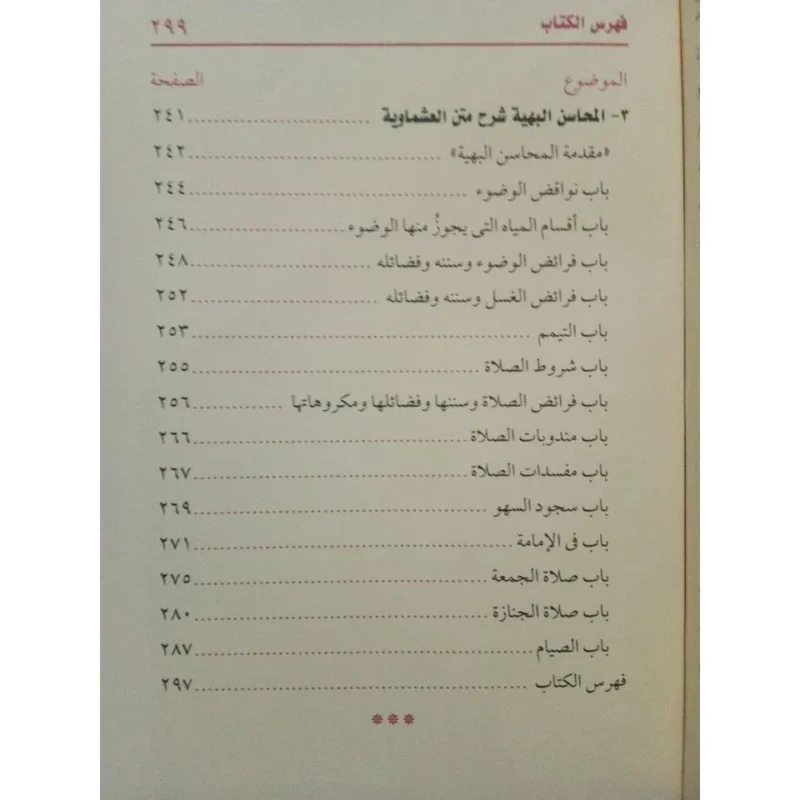 فهرس الكتاب ٢٩٩
الموضوع الصفحة
٣- المحاسن البهية شرح متن العشماوية ........ ٢٤١
«مقدمة المحاسن البهية» ........ ٢٤٢
باب نواقض الوضوء ........ ٢٤٤
باب أقسام المياه التى يجوزُ منها الوضوء ........ ٢٤٦
باب فرائض الوضوء وسننه وفضائله ........ ٢٤٨
باب فرائض الغسل وسننه وفضائله ........ ٢٥٢
باب التيمم ........ ٢٥٣
باب شروط الصلاة ........ ٢٥٥
باب فرائض الصلاة وسننها وفضائلها ومكروهاتها ........ ٢٥٦
باب مندوبات الصلاة ........ ٢٦٦
باب مفسدات الصلاة ........ ٢٦٧
باب سجود السهو ........ ٢٦٩
باب فى الإمامة ........ ٢٧١
باب صلاة الجمعة ........ ٢٧٥
باب صلاة الجنازة ........ ٢٨٠
باب الصيام ........ ٢٨٧
فهرس الكتاب ........ ٢٩٧